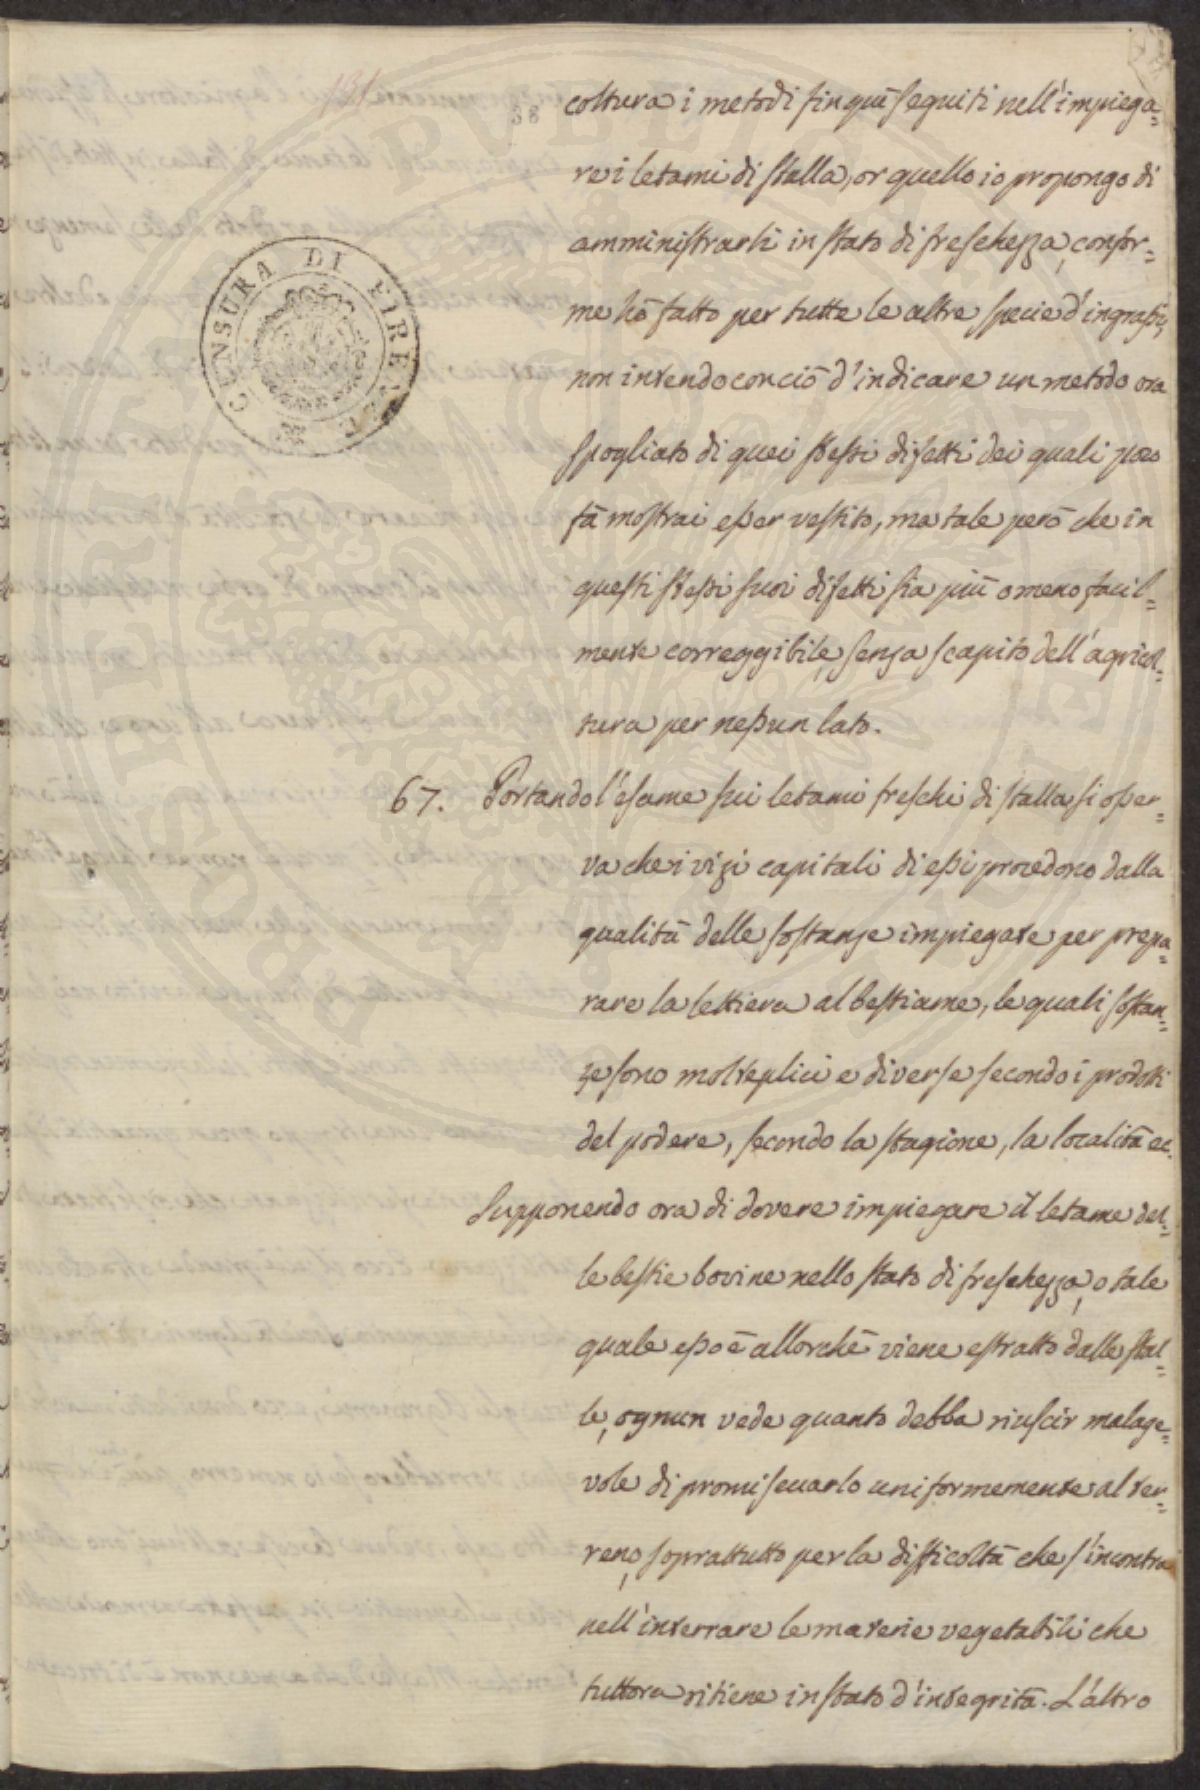 131
38
coltura i metodi fin quì seguiti nell'impiega=
re i letami di stalla, or quello io propongo di
amministrarli in stato di freschezza, confor=
me hò fatto per tutte le altre specie d'ingrassi,
non intendo con ciò d'indicare un metodo ora
spogliato di quei stessi difetti dei quali poco
fà mostrai esser vestito, ma tale però che in
questi stessi suoi difetti sia più o meno facil=
mente correggibile, senza scapito dell'agricol=
tura per nessun lato.
67. Portando l'esame sui letami freschi di stalla si osser=
va che i vizi capitali di essi procedono dalla
qualità delle sostanze impiegate per prepa=
rare la lettiera al bestiame, le quali sostan=
ze sono molteplici e diverse secondo i prodotti
del podere, secondo la stagione, la località ec.
Supponendo ora di dovere impiegare il letame del=
le bestie bovine nello stato di freschezza, o tale
quale esso è allorchè viene estratto dalle stal=
le, ognun vede quanto debba riuscir malage=
vole di promiscuarlo uniformemente al ter=
reno, soprattutto per la difficoltà che s'incontra
nell'interrare le materie vegetabili che
tuttora ritiene in stato d'integrità. L'altro
CENSURA DI FIRENZE